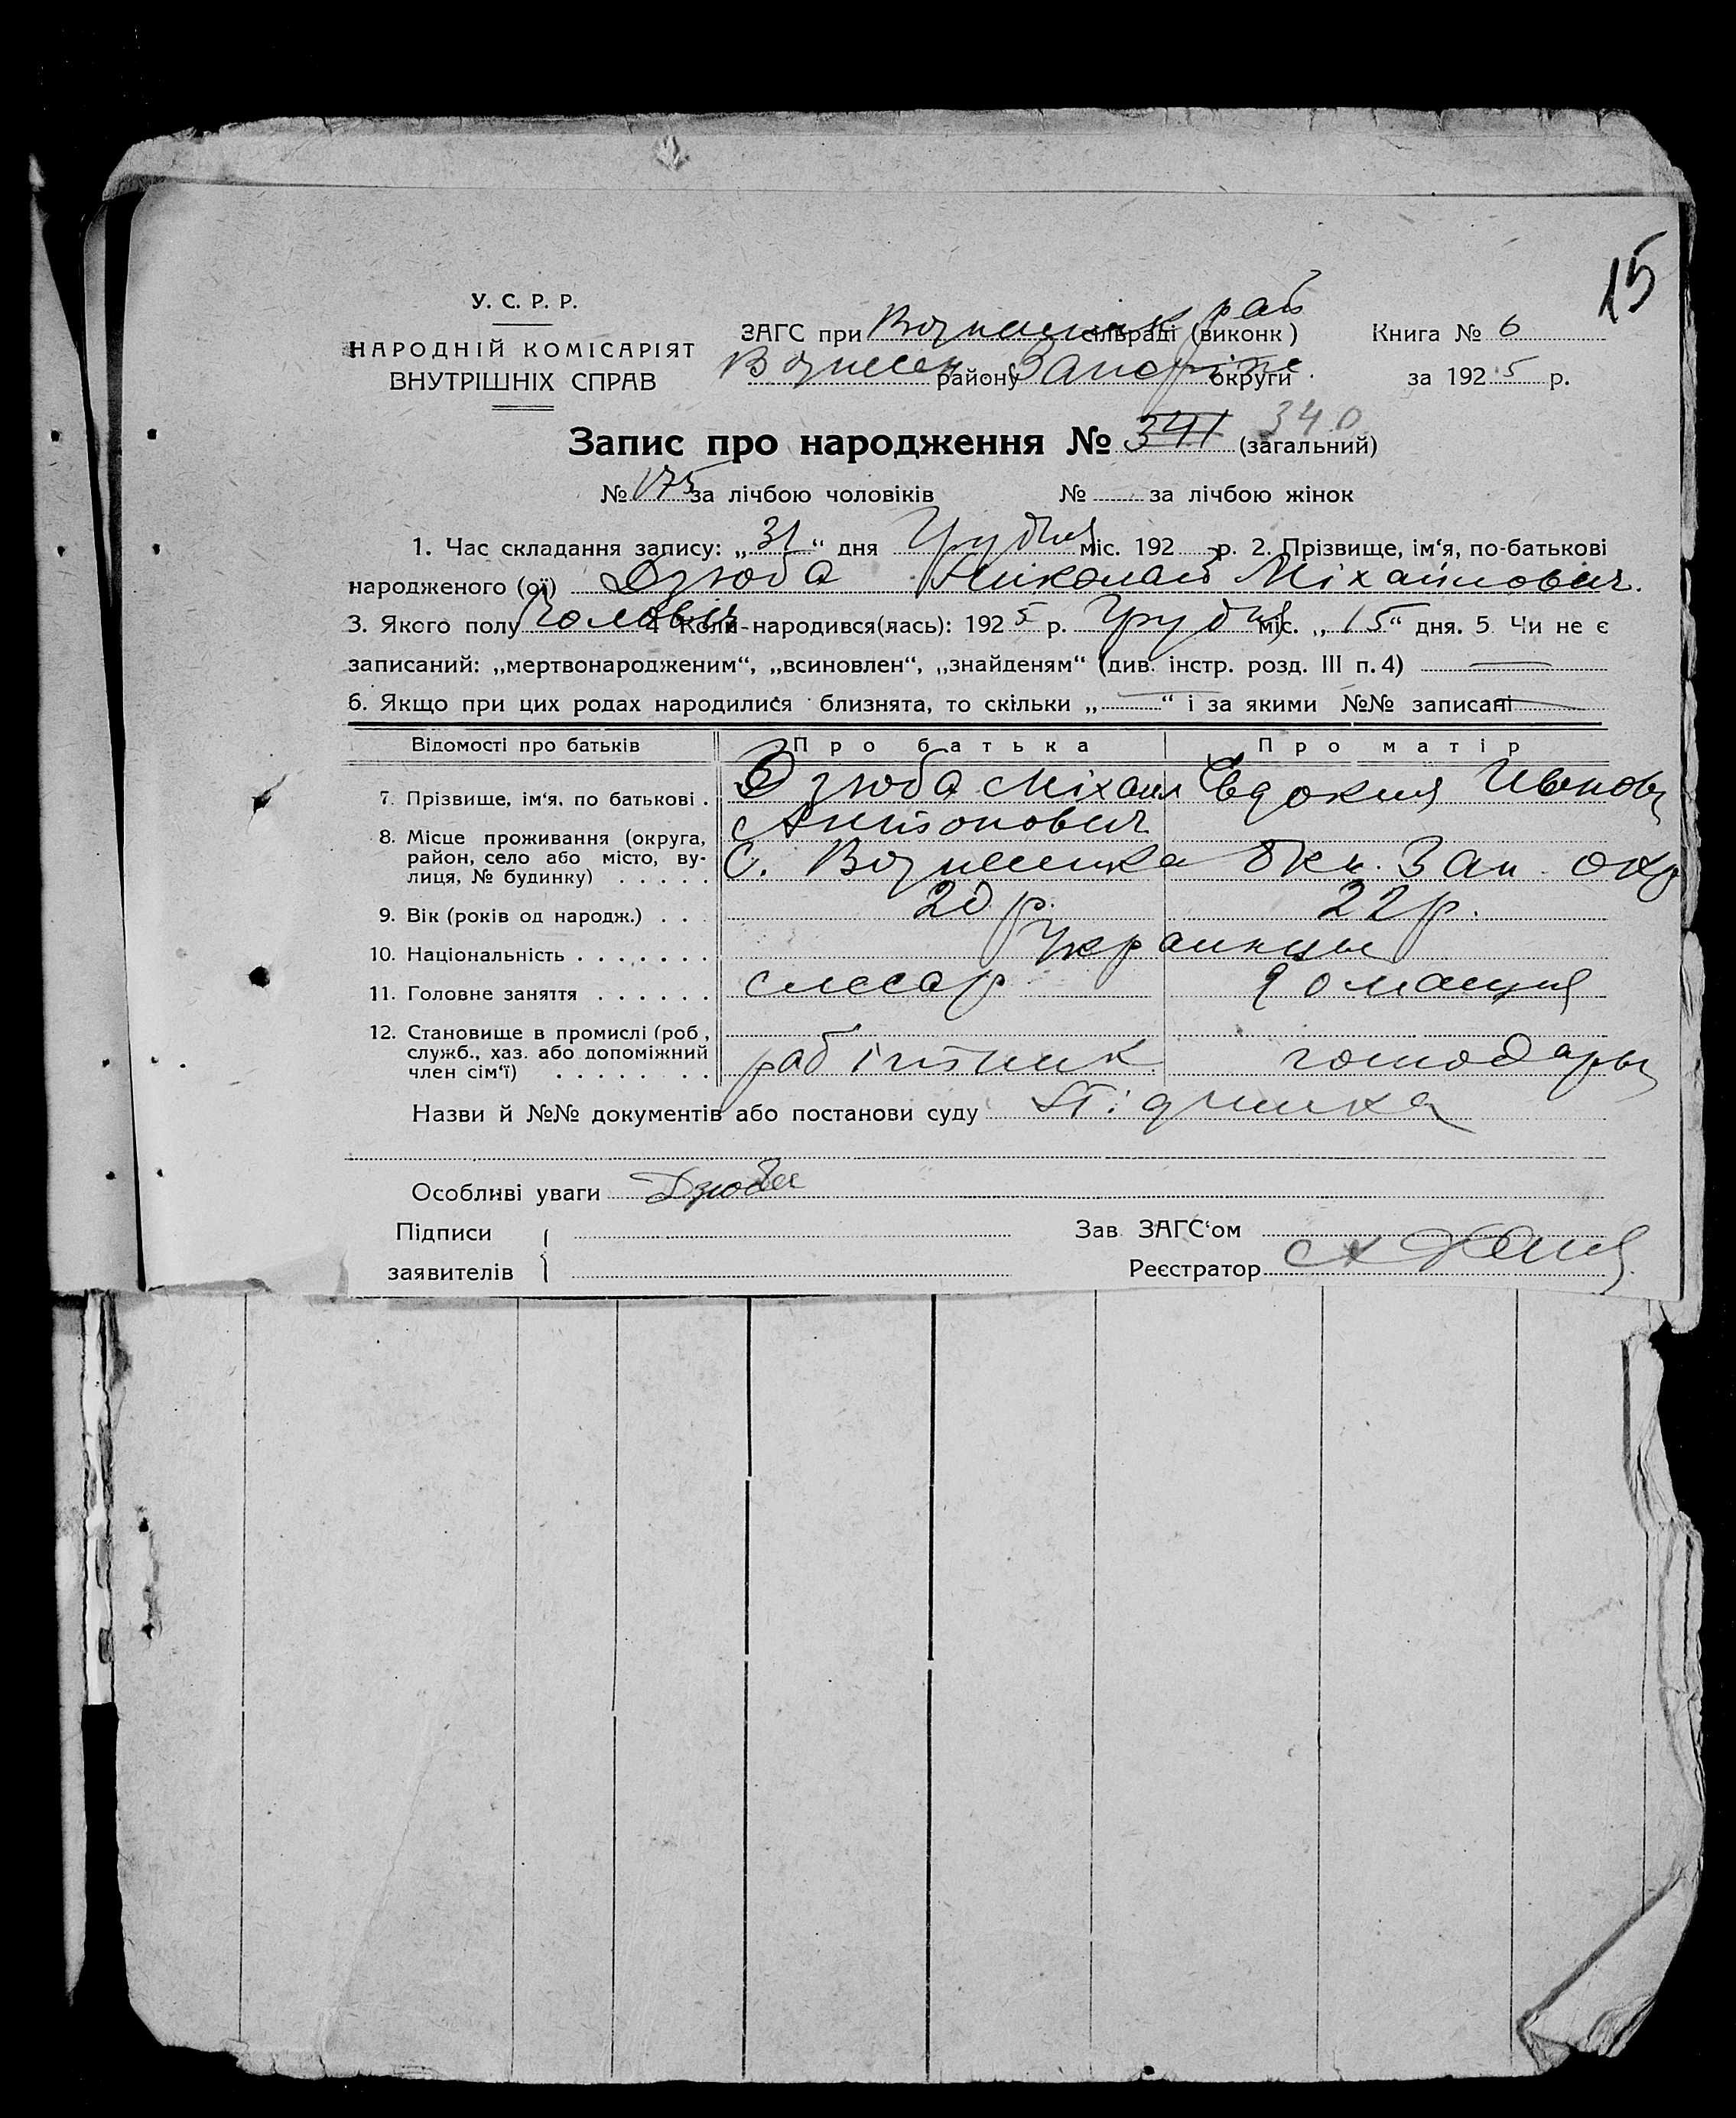 15
У. С. Р. Р.
НАРОДНІЙ КОМІСАРІЯТ
ВНУТРІШНІХ СПРАВ
ЗАГС при Вознесенск рай сільраді (виконк)
Вознесен району Запоріже округи
Книга № 6
за 1925 р.
Запис про народження № 341 340 (загальний)
№ 175 за лічбою чоловіків № за лічбою жінок
1. Час складання запису: „31“ дня Грудня міс. 192 р. 2. Прізвище, ім‘я, по-батькові
народженого (ої) Дзюба Николай Міхайлович.
3. Якого полу чоловік 4 Коли народився(лась): 1925 р. Грудня міс. „15“ дня. 5 Чи не є
записаний: „мертвонародженим“, „всиновлен“, „знайденям“ (див. інстр. розд. III п. 4) —
6. Якщо при цих родах народилися близнята, то скільки „—“ і за якими №№ записані —
Відомості про батьків Про батька Про матір
7. Прізвище, ім‘я, по батькові . Дзюба Міхаил Антонович Евдокия Иванов
8. Місце проживання (округа,
район, село або місто, ву-
лиця, № будинку) . . . . . С. Вознесенка Зап. окр
9. Вік (років од народж.) . . . 20 р. 22 р.
10. Національність . . . . . . . Украинцы
11. Головне заняття . . . . . . слесар домашня
12. Становище в промислі (роб.,
служб., хаз. або допоміжний
член сім‘ї) . . . . . . . . рабітник господары
Назви й №№ документів або постанови суду
Особливі уваги Дзюба
Підписи
заявителів
Зав. ЗАГС‘ом
Реєстратор